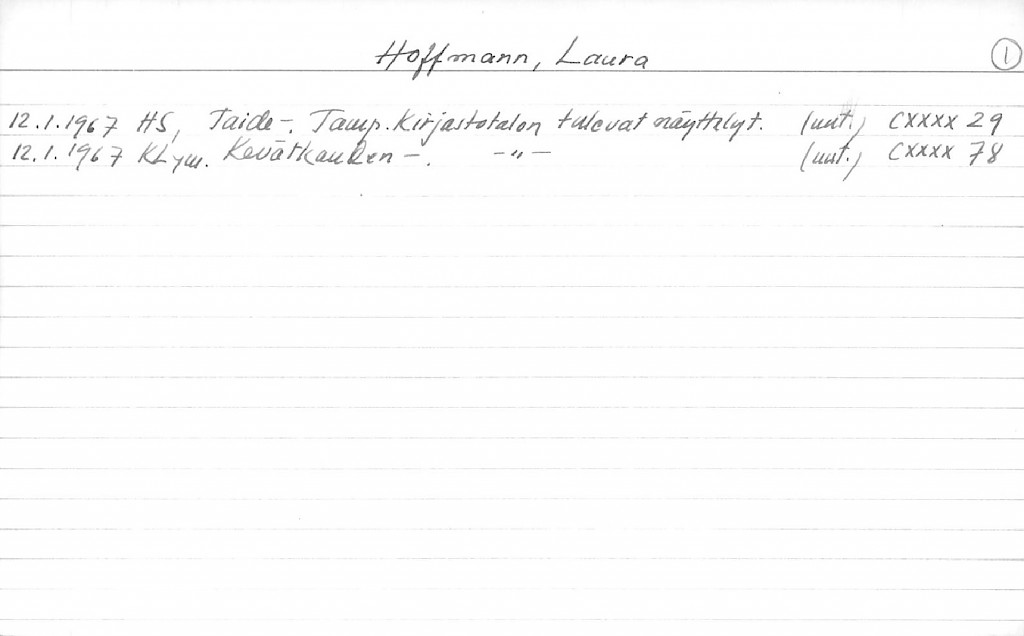 Hoffmann, Laura 1
12.1.1967 HS, Taide-. Tamp. Kirjastotalon tulevat näyttelyt. (uut.) CXXXX 29
12.1.1967 KLym. Kevätkauden -. -"- (uut.) CXXXX 78